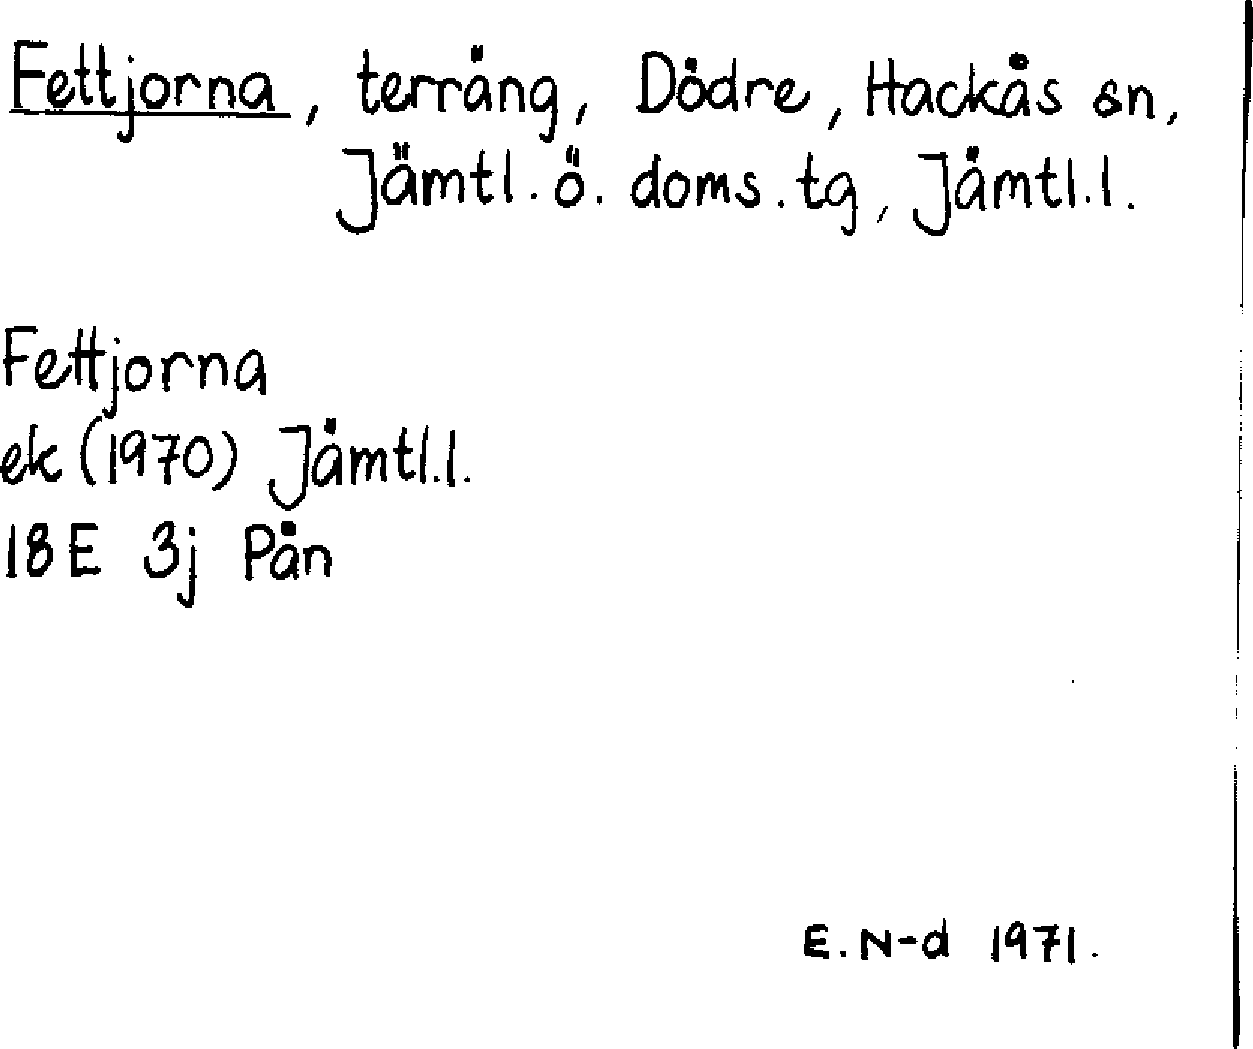 Fettjorna, terräng, Dödre, Hackås sn,
Jämtl. ö. doms. tg, Jämtl. l.
Fettjorna
ek (1970) Jämtl. l.
18E 3j Pän
E. N-d 1971.